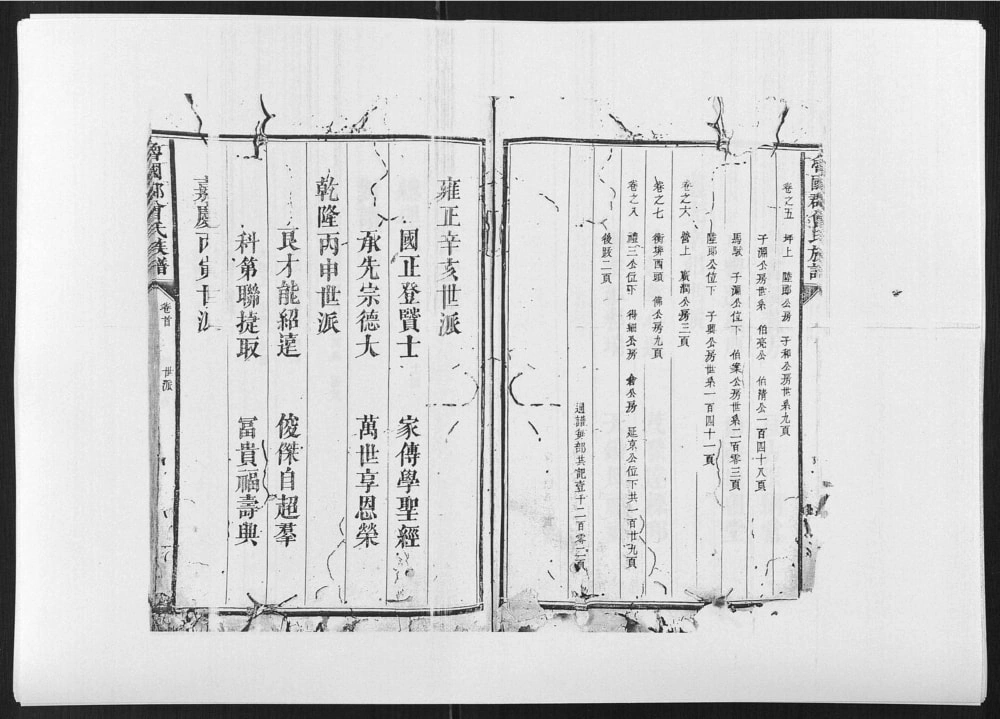 卷之五 坪上 陸郎公房 子和公房世系九頁
子淵公房世系 伯亮公 伯清公一百四十八頁
馬䭾 子淵公位下 伯業公房世系二百零三頁
陸郎公位下 子興公房世系一百四十一頁
卷之六 營上 廣潤公房三頁
卷之七 衝塀西頭 佛公房九頁
卷之八 禮三公位下 得細公房 倉公房 延京公位下共一百廿九頁
後跋二頁
通譜每部共記壹千二百零二頁
雍正辛亥世派
國正登賢士 家傳學聖經
承先宗德大 萬世享恩榮
乾隆丙申世派
良才能紹遠 俊傑自超羣
科第聯捷取 富貴福壽興
嘉慶丙寅世派
魯國郡曾氏族譜 卷首 世派